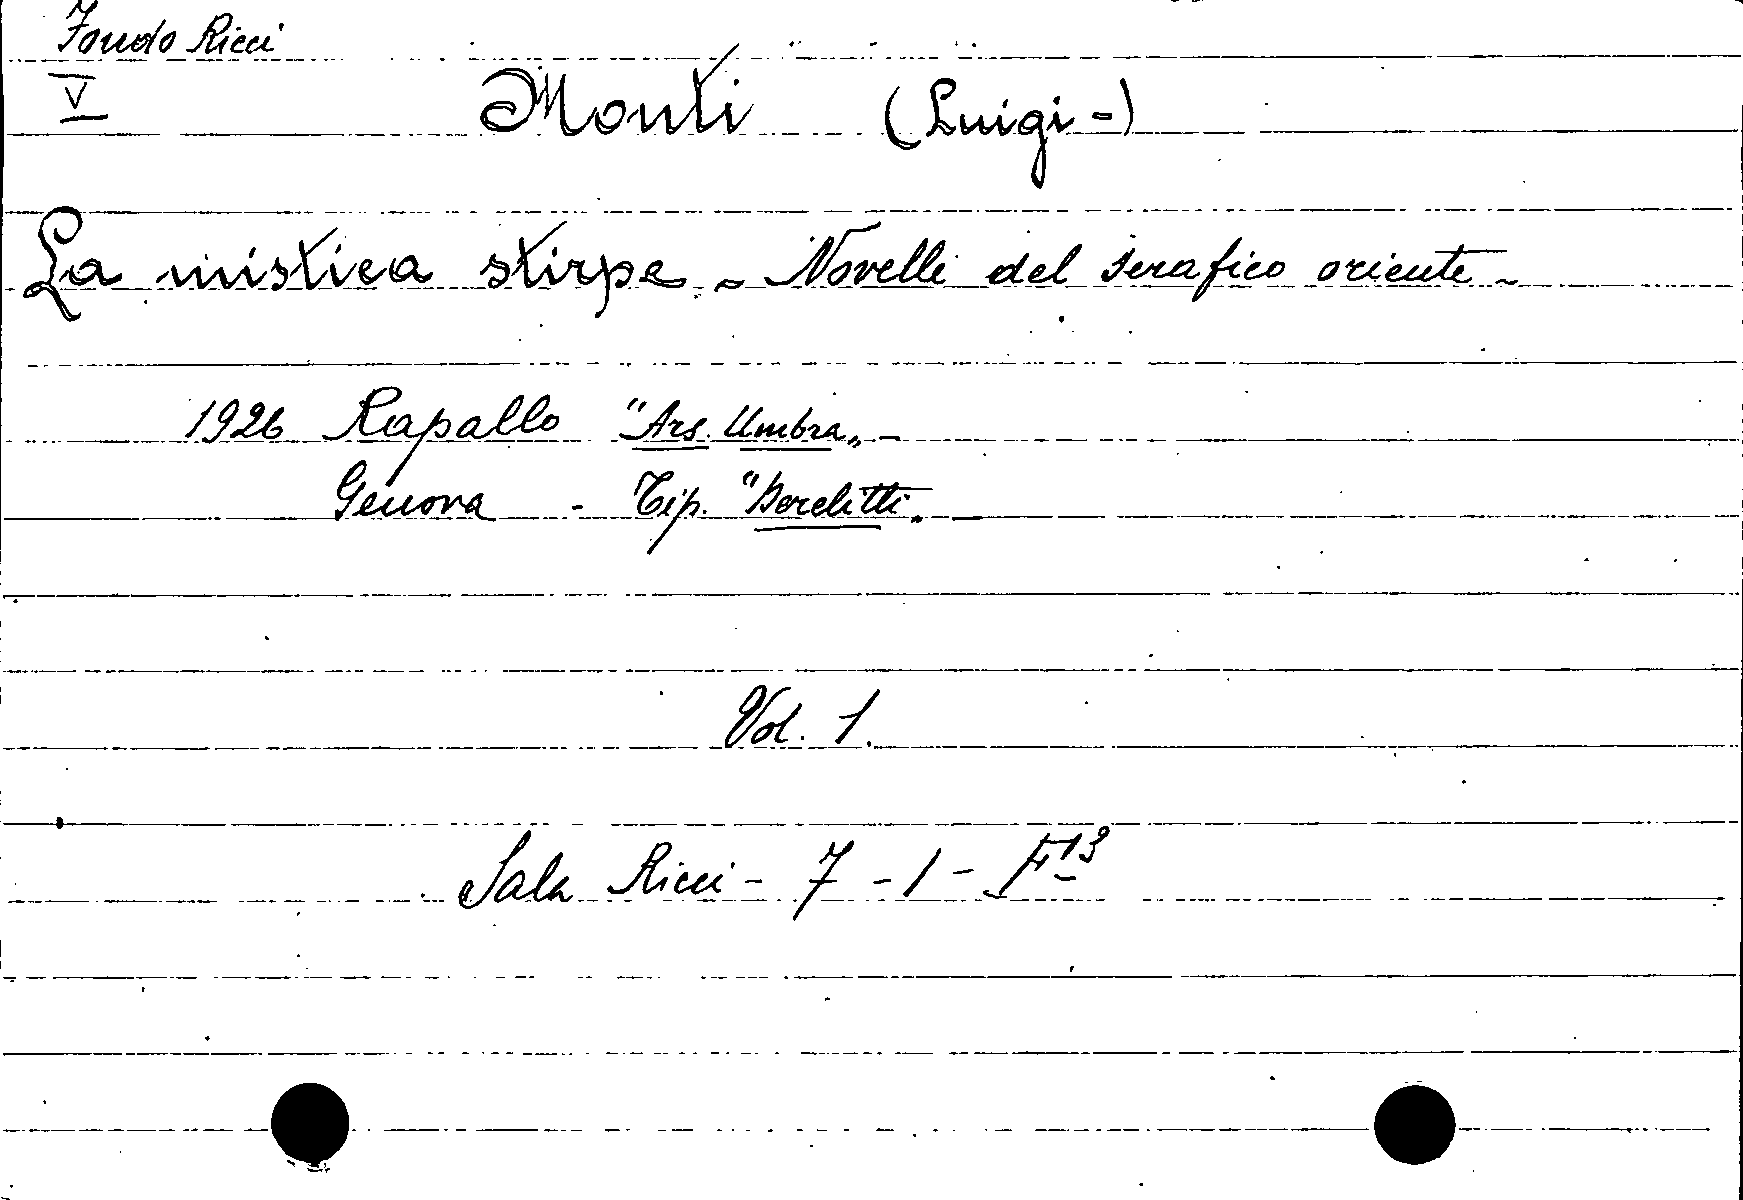 Fondo Ricci
V
Monti (Luigi -)
La mistica stirpe - Novelli del serafico oriente -
1926 Rapallo "Ars. Umbra" -
Genova - Tip.
Vol. 1.
Sala Ricci - 7 - 1 - F 13